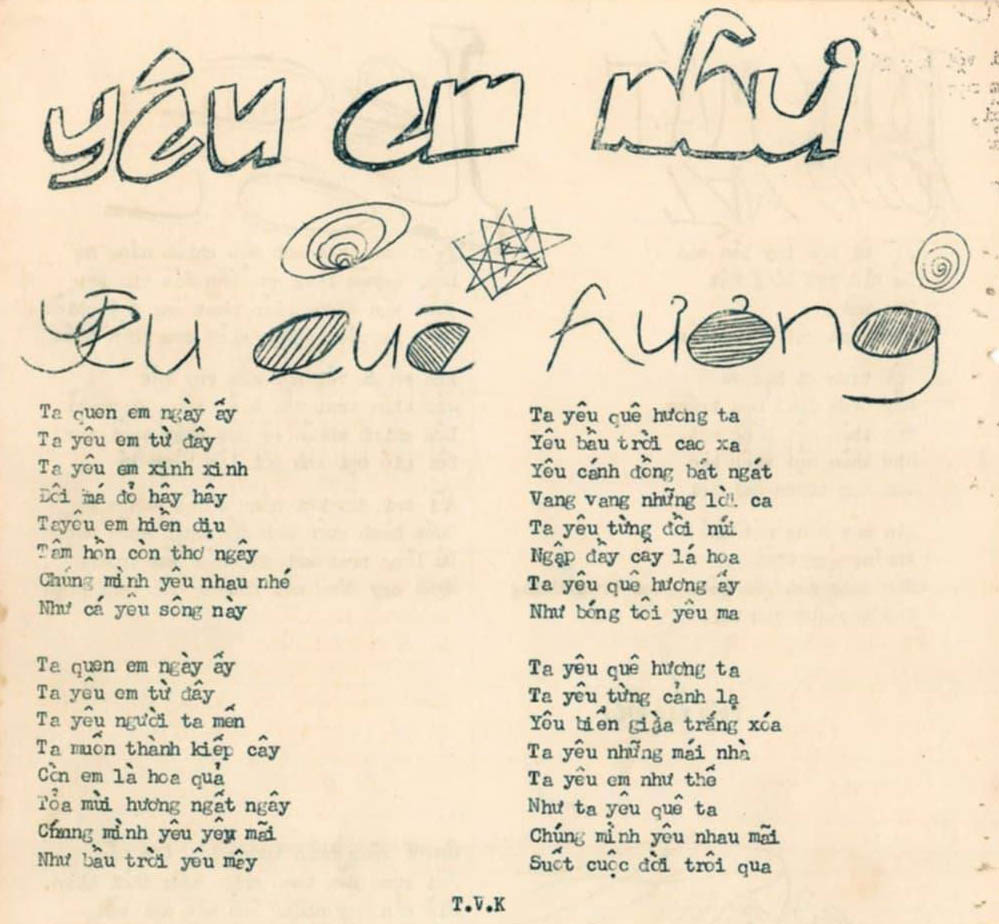 yêu em như
yêu quê hương
Ta quen em ngày ấy
Ta yêu em từ đây
Ta yêu em xinh xinh
Đôi má đỏ hây hây
Tayêu em hiền dịu
Tâm hồn còn thơ ngây
Chúng mình yêu nhau nhé
Như cá yêu sông này
Ta quen em ngày ấy
Ta yêu em từ đây
Ta yêu người ta mến
Ta muốn thành kiếp cây
Còn em là hoa quả
Tỏa mùi hương ngất ngây
Chúng mình yêu yêu mãi
Như bầu trời yêu mây
Ta yêu quê hương ta
Yêu bầu trời cao xa
Yêu cánh đồng bát ngát
Vang vang những lời ca
Ta yêu từng đồi núi
Ngập đầy cây lá hoa
Ta yêu quê hương ấy
Như bóng tôi yêu ma
Ta yêu quê hương ta
Ta yêu từng cảnh lạ
Yêu biển già trắng xóa
Ta yêu những mái nhà
Ta yêu em như thế
Như ta yêu quê ta
Chúng mình yêu nhau mãi
Suốt cuộc đời trôi qua
T.V.K